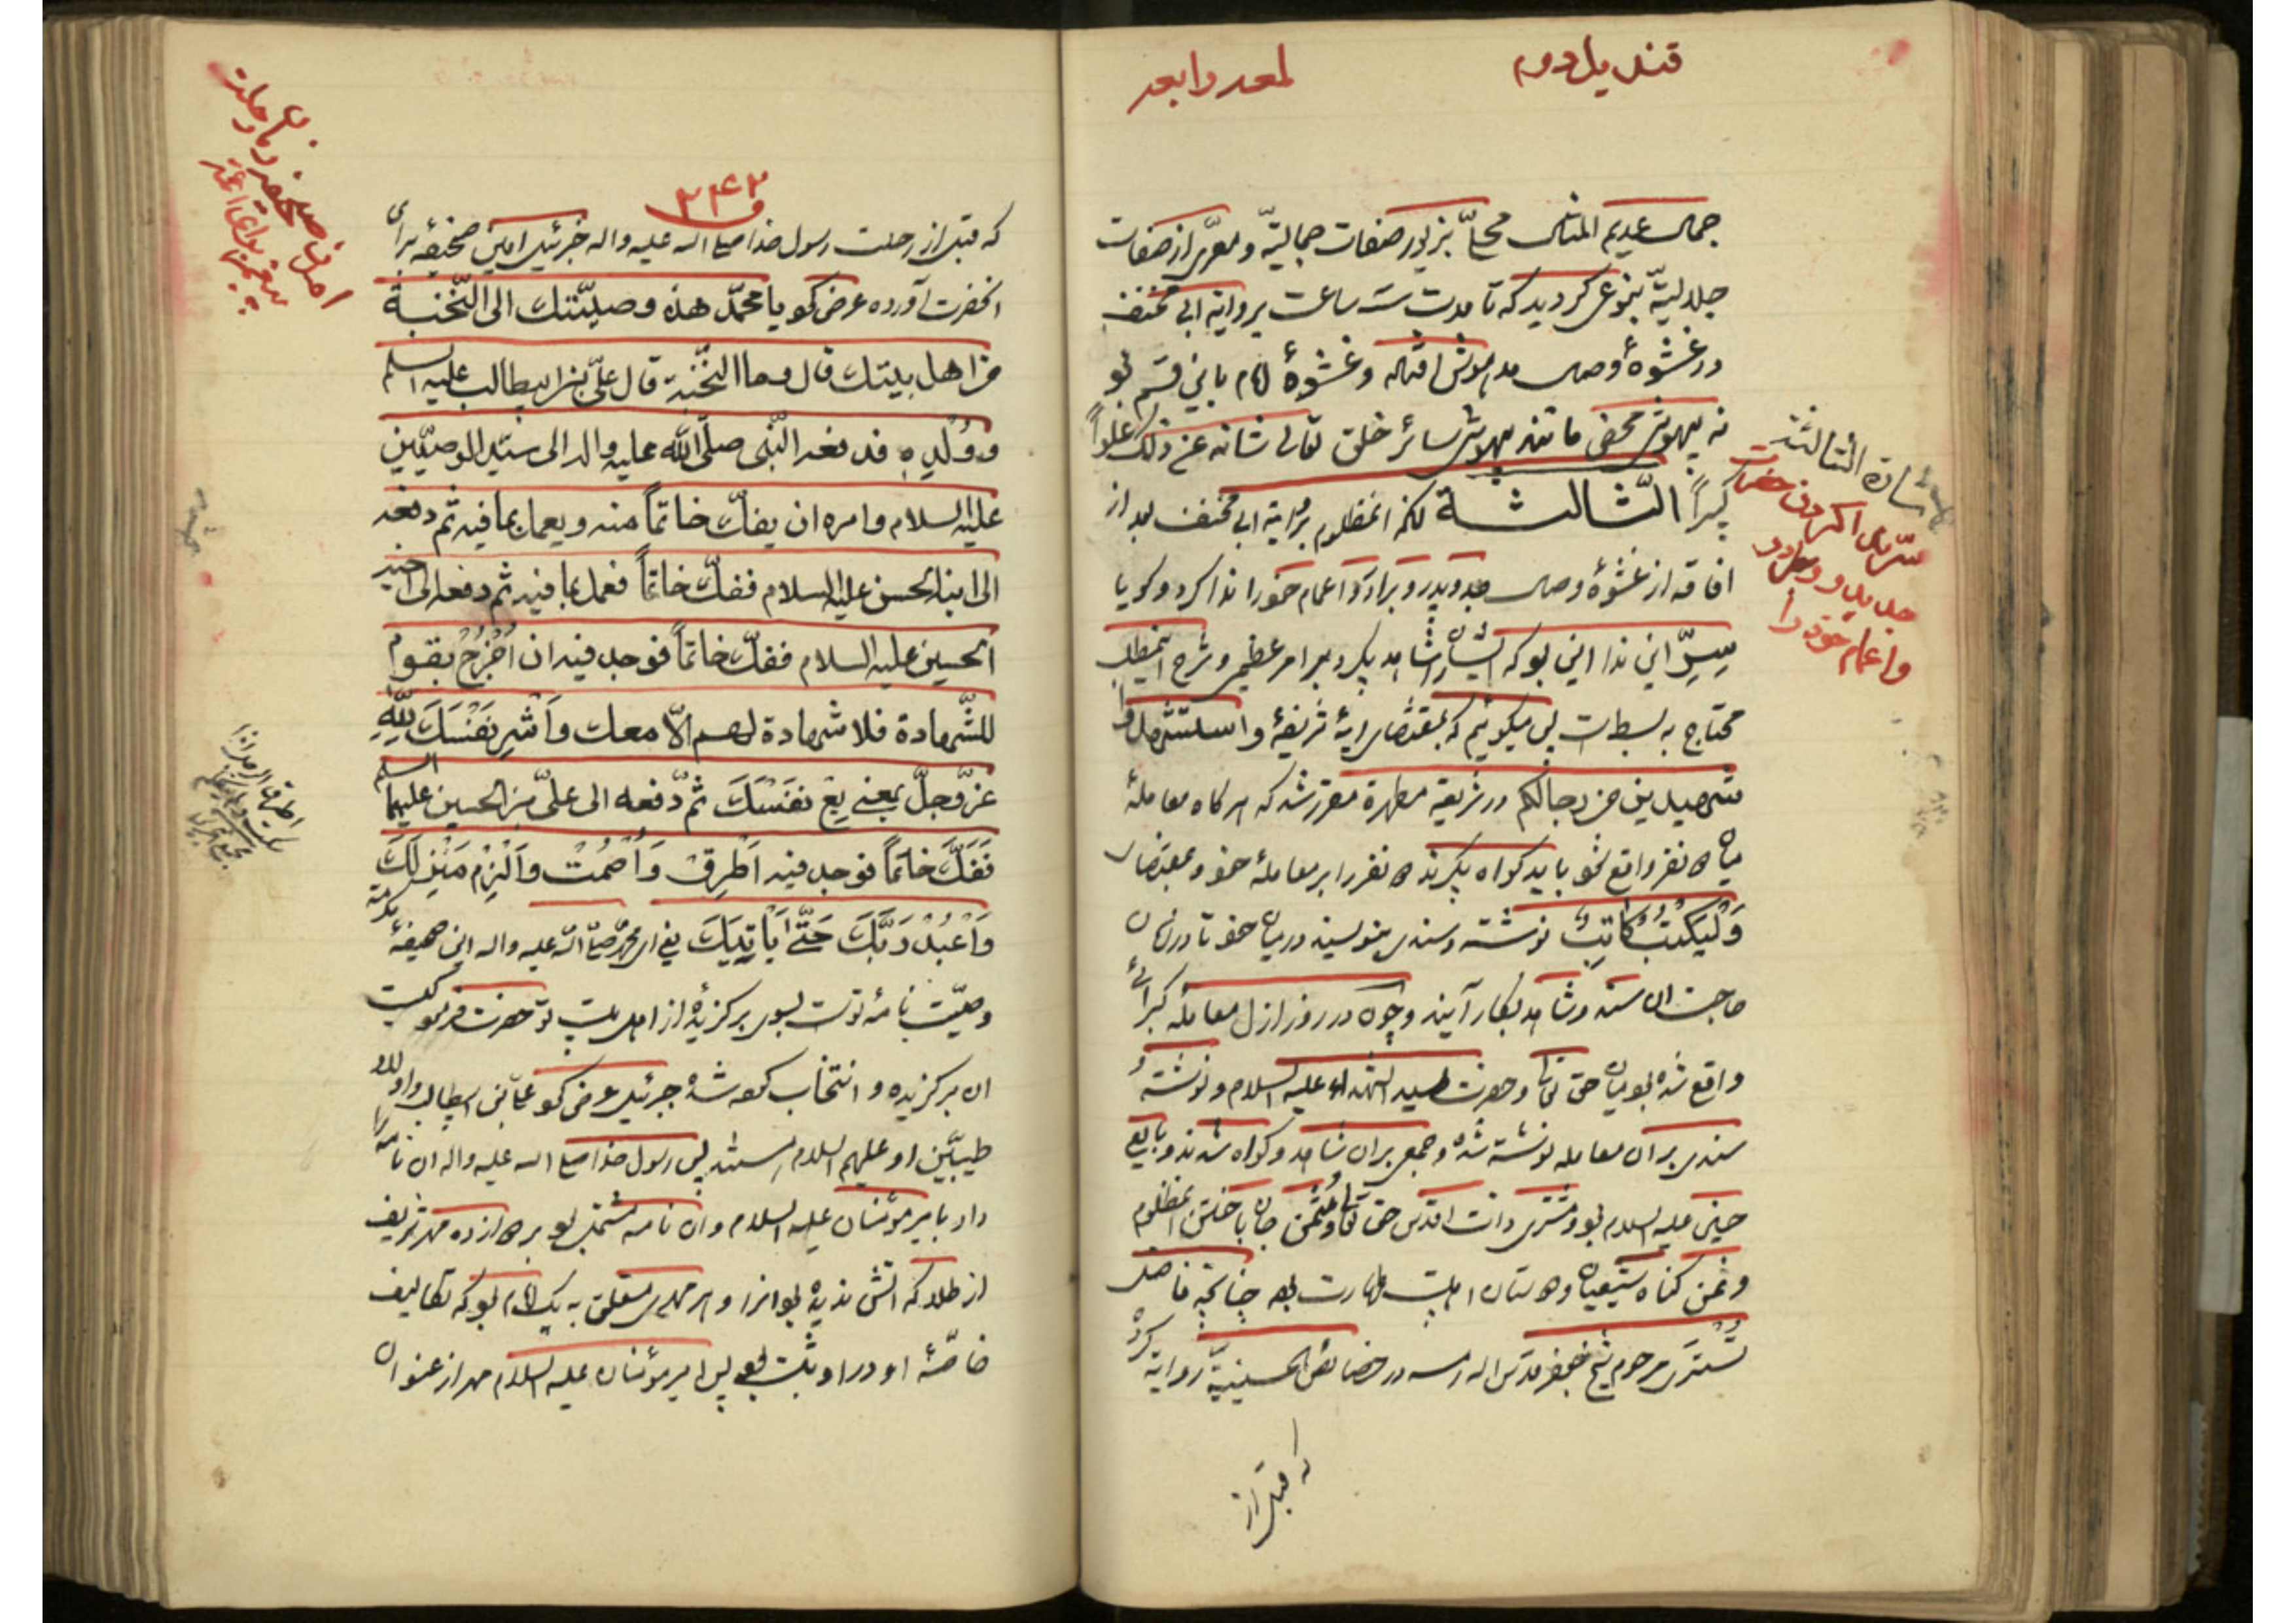 قندیل دوم
لمعه رابعه
جمال عدیم المثال محلّا بزیور صفات جمالیّه و معرّی از صفات
جلالیّه بنوعی کردید که تا مدت سه ساعت بروایة ابی مخنف
در غشوهٔ وصال مدهوش افتاد و غشوهٔ امام باین قسم بود
نه بیهوش محض مانند بیهوشی سائر خلق تعالی شانه عن ذلک علواً
کبیراً الثّالثة انمظلوم بروایة ابی مخنف بعد از
افاقه از غشوهٔ وصال جد و پدر و برادر و اعمام خود را ندا کرد و کویا
سِرّ این ندا این بود که ایشانرا شاهد بکیرد بر امر عظیمی و شرح اینمطلب
محتاج به بسط است پس میکوئیم که بمقتضای ایهٔ شریفهٔ و استشهدوا
شهیدین من رجالکم در شریعة مطهرة مقرر شد که هر کاه معاملهٔ
میان نفر واقع شود باید کواه بکیرند نفر را بر معاملهٔ خود و بمقتضای
وَلْیَکْتُبْ کَاتِبٌ نوشته و سندی بنویسند در میان خود تا در زمان
حاجت ان سند و شاهد بکار آیند و چون در روز ازل معاملهٔ کبرائی
واقع شده بود میان حق تعالی و حضرت سید الشهداء علیه السلام و نوشتهٔ و
سندی بر ان معامله نوشته شده و جمعی بر ان شاهد و کواه شدند و بایع
حسین علیه السلام بود و مشتری ذات اقدس حق تعالی و مُثمن جان باختن انمظلوم
و ثمن کناه شیعیان و دوستان اهلبیت طهارت بود چنانچه فاضل
تُستَری مرحوم شیخ جعفر قدس اله رمسه در خصائص الحسینیّة روایة کرده
که قبل از
اشارة الثالثة
سرّ ندا کردن حضرت
جد و پدر و برادر
و اعمام خود را
۳۴۲
که قبل از رحلت رسول خدا صلی الله علیه واله جبرئیل امین صحیفهٔ برای
انحضرت آورده عرض کرد یا محمّد هذه وصیّتک الی النّخبة
من اهل بیتک قال وما النّخبة قال علیّ بن ابیطالب علیه السلام
و وُلْدِهِ فدفعه النّبی صلّی اللّه علیه واله الی سیّد الوصیّین
علیه السلام وامره ان یفکّ خاتماً منه ویعمل بما فیه ثم دفعه
الی ابنه الحسن علیه السلام ففکّ خاتماً فعمل بما فیه ثم دفعه الی اخیه
الحسین علیه السلام ففکّ خاتماً فوجد فیه ان اُخْرُجْ بقوم
للشّهادة فلا شهادة لهم الّا معک وَاشْرِ نَفْسَکَ لِلّهِ
عزّ وجلّ بمعنی بِعْ نَفْسَکَ ثمّ دفعه الی علیّ بن الحسین علیهما السلم
فَفَکَّ خاتماً فوجد فیه اَطْرِقْ وَاَصْمِتْ وَالْزِمْ مَنْزِلَکَ
وَاعْبُدْ رَبَّکَ حَتّی یَأتِیَکَ یعنی ای محمّد صلی الله علیه واله این صحیفهٔ مکرمه
وصیّت نامهٔ توست بسوی برکزیدهٔ از اهل بیت تو حضرت فرمود کیست
ان برکزیده و انتخاب کرده شده جبرئیل عرض کرد علی بن ابیطالب و اولاد
طیّبین او علیهم السلام پس رسول خدا صلی الله علیه واله ان نامه را
داد بامیر مؤمنان علیه السلام و ان نامه مشتمل بود بر دوازده مهر شریف
از طلا که اتش ندیده بود انرا و هر مهری متعلق به یک امام بود که تکالیف
خاصّهٔ او در او ثبت بود پس امیر مؤمنان علیه السلام مهر از عنوان